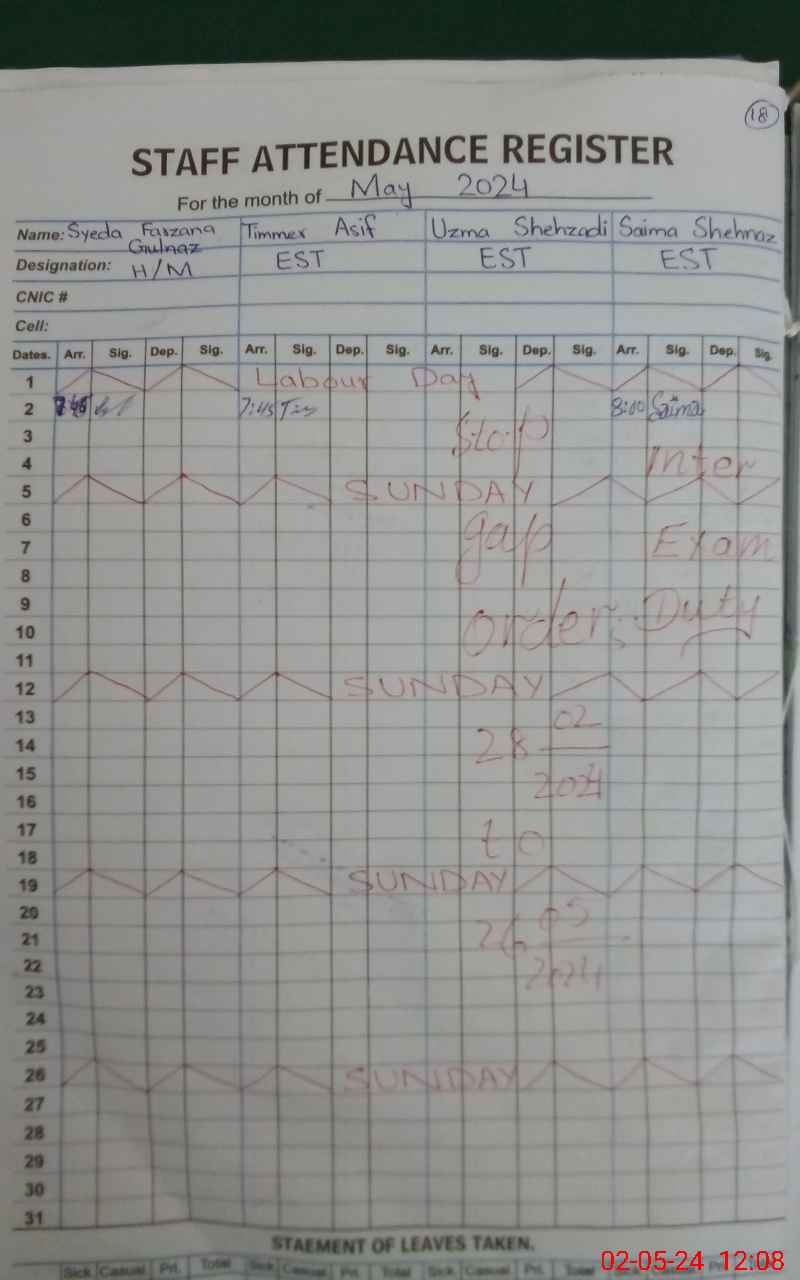 18
STAFF ATTENDANCE REGISTER
For the month of May 2024
Name: Syeda Farzana Gulnaz Timmer Asif Uzma Shehzadi Saima Shehnaz
Designation: H/M EST EST EST
CNIC #
Cell:
Dates. Arr. Sig. Dep. Sig. Arr. Sig. Dep. Sig. Arr. Sig. Dep. Sig. Arr. Sig. Dep. Sig.
1 Labour Day
2 7:45 7:45 8:00 Saima
3 Stop
4 Inter
5 SUNDAY
6
7 gap Exam
8
9 Duty
10 order
11
12 SUNDAY
13 02
14 28
15 2024
16
17 to
18
19 SUNDAY
20 05
21 26
22 2024
23
24
25
26 SUNDAY
27
28
29
30
31
STAEMENT OF LEAVES TAKEN.
Sick Casual Pri. Total Sick Casual Pri. Total Sick Casual Pri. Total
02-05-24 12:08